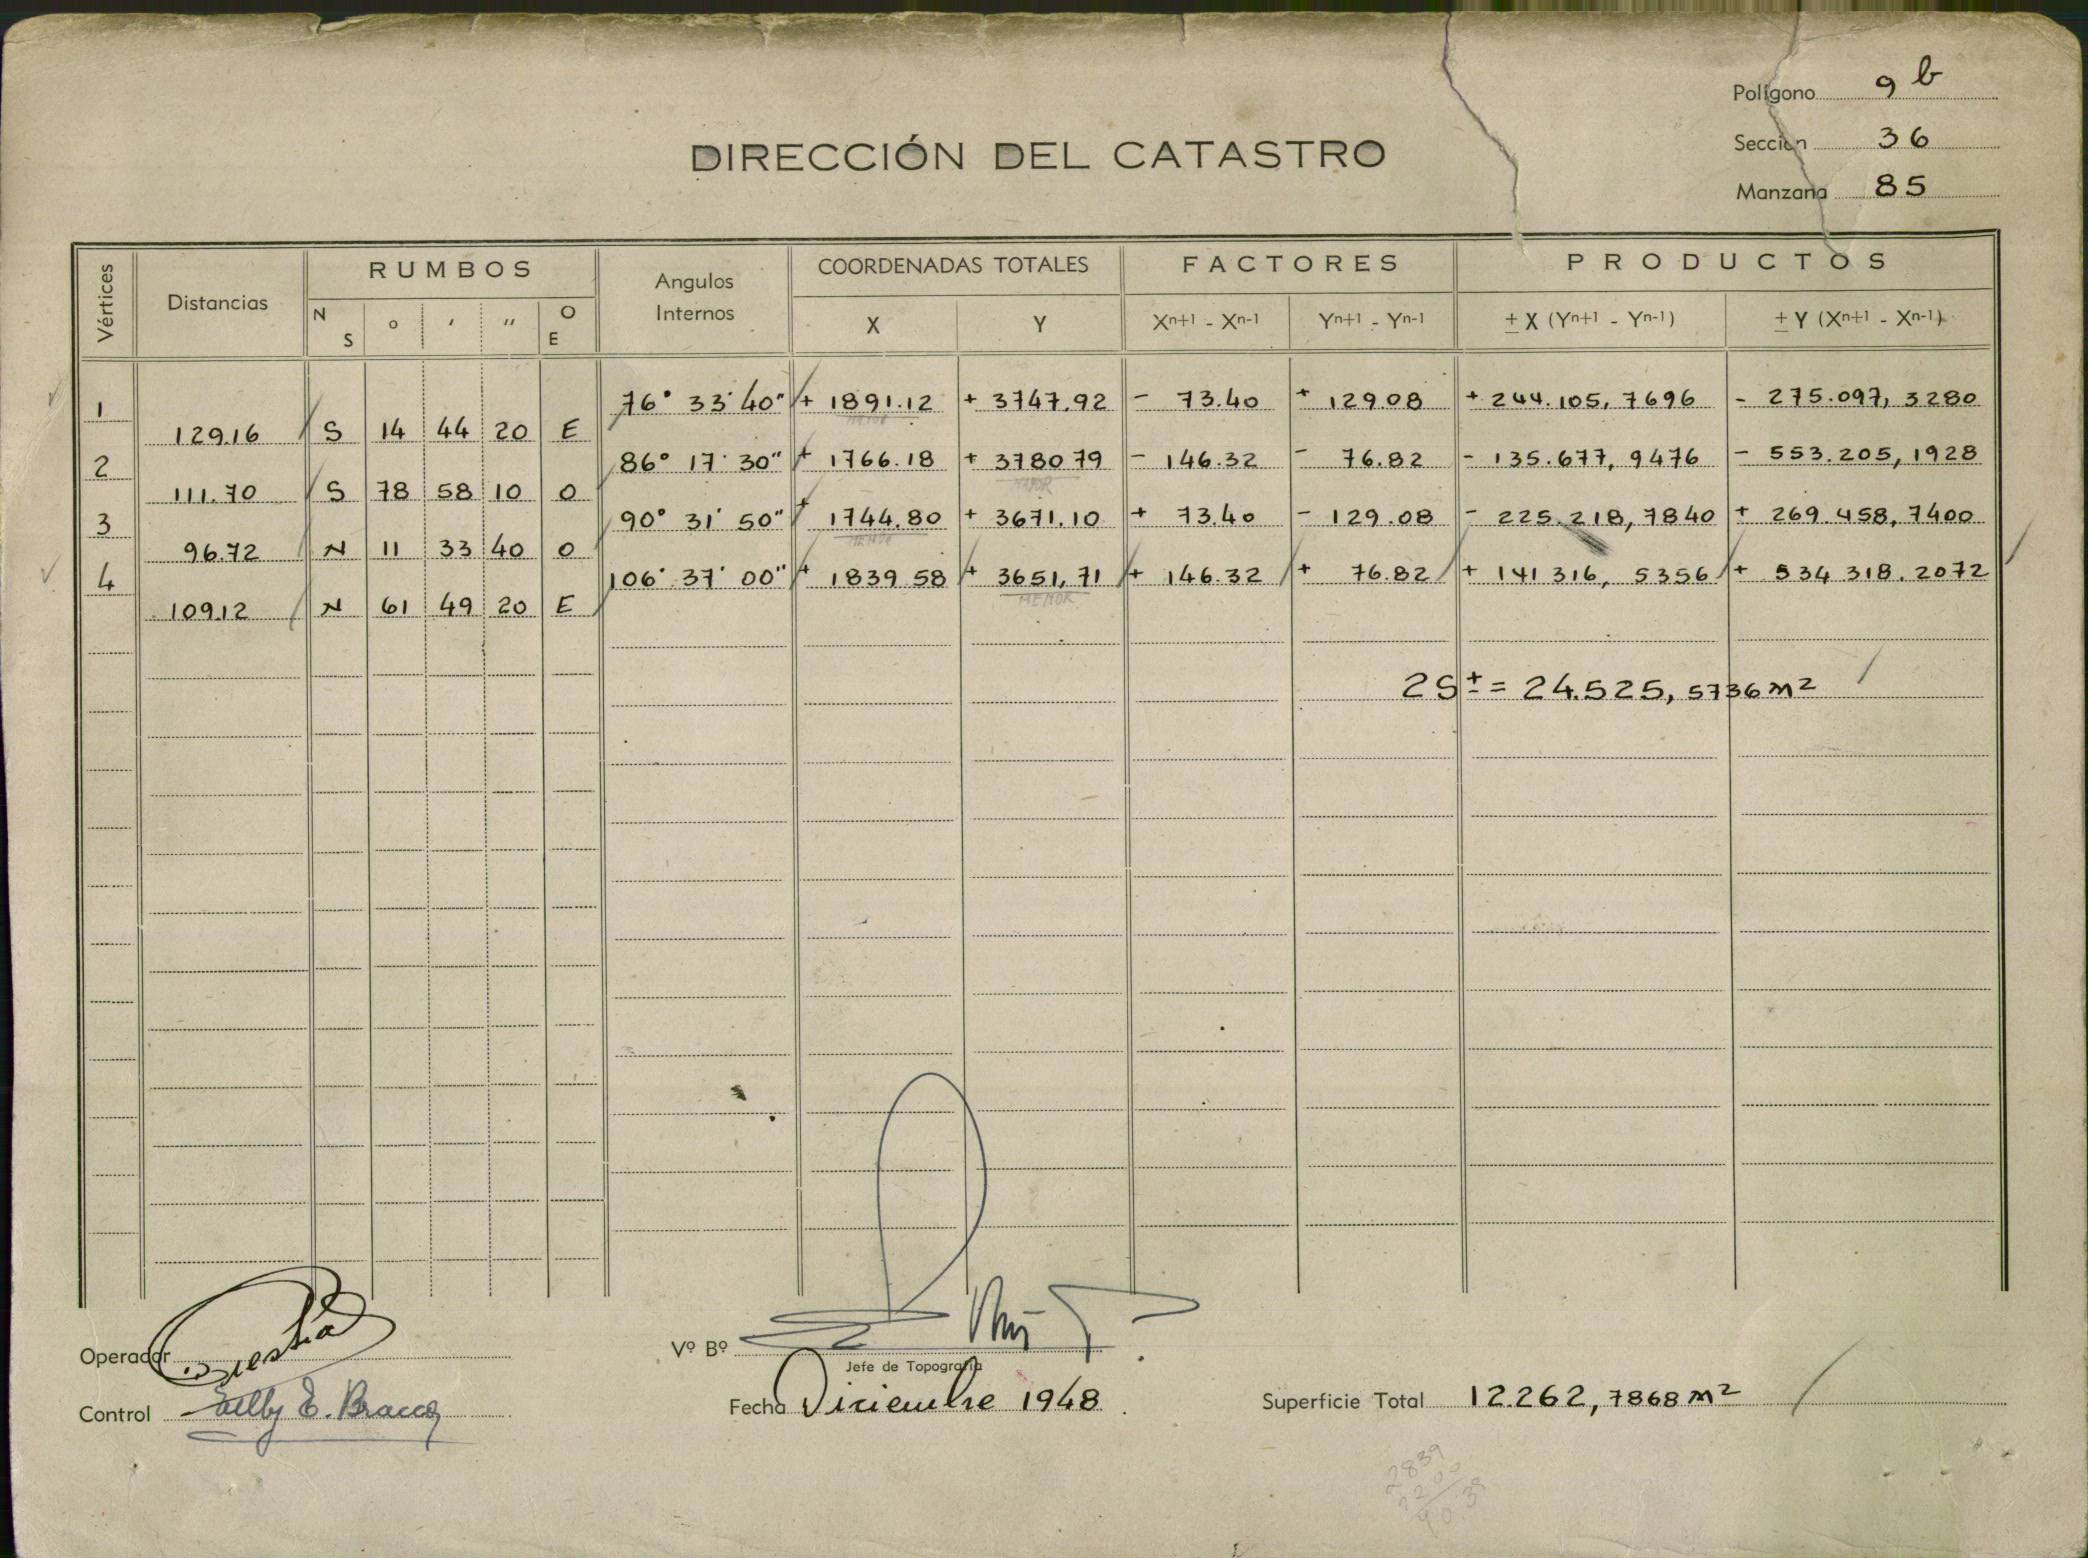 Polígono 9 b
Sección 36
Manzana 85
DIRECCIÓN DEL CATASTRO
Vértices Distancias RUMBOS Angulos Internos COORDENADAS TOTALES FACTORES PRODUCTOS
N S ° ' " O E X Y Xn+1 - Xn-1 Yn+1 - Yn-1 ± X (Yn+1 - Yn-1) ± Y (Xn+1 - Xn-1)
1 76° 33' 40" + 1891.12 + 3747.92 - 73.40 + 129.08 + 244.105,7696 - 275.097,3280
129.16 S 14 44 20 E
2 86° 17' 30" + 1766.18 + 3780 79 - 146.32 - 76.82 - 135.677,9476 - 553.205,1928
MAYOR
111.70 S 78 58 10 O
3 90° 31' 50" + 1744.80 + 3671.10 + 73.40 - 129.08 - 225.218,7840 + 269.458,7400
MENOR
96.72 N 11 33 40 O
4 106° 37' 00" + 1839 58 + 3651,71 + 146.32 + 76.82 + 141 316, 5356 + 534 318.2072
MENOR
109.12 N 61 49 20 E
2S ± = 24.525,5736 m²
Operador
Control E. Bracco
Vº Bº
Jefe de Topografía
Fecha Diciembre 1948
Superficie Total 12.262,7868 m²
2839